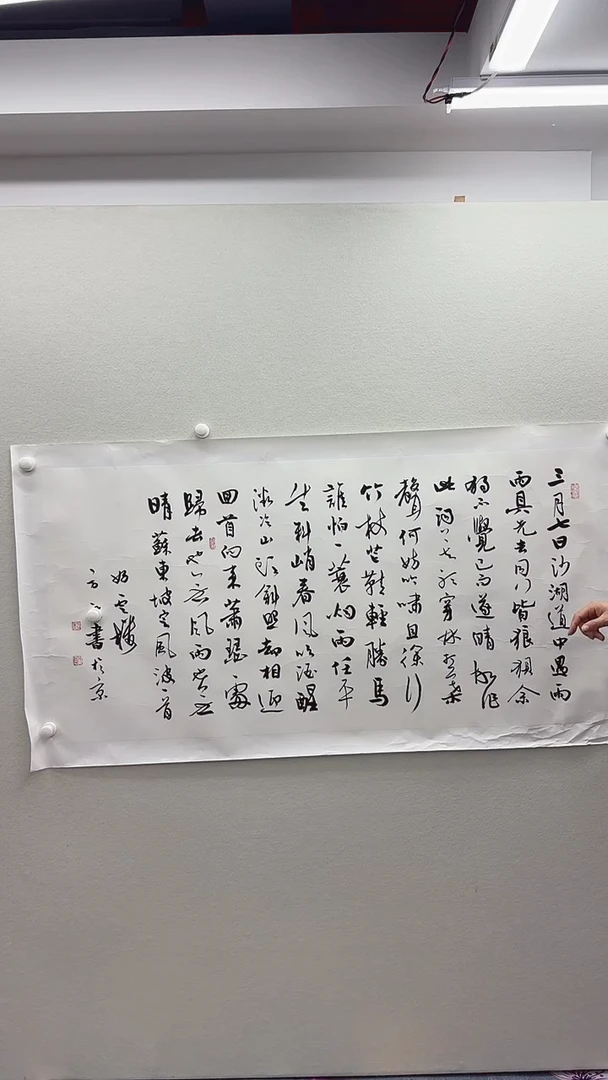 三月七日沙湖道中遇雨
雨具先去同行皆狼狽余
獨不覺已而遂晴故作
此詞莫聽穿林打葉
聲何妨吟嘯且徐行
竹杖芒鞋輕勝馬
誰怕一蓑烟雨任平
生料峭春風吹酒醒
微冷山頭斜照却相迎
回首向來蕭瑟處
歸去也無風雨也無
晴蘇東坡定風波一首
書於京